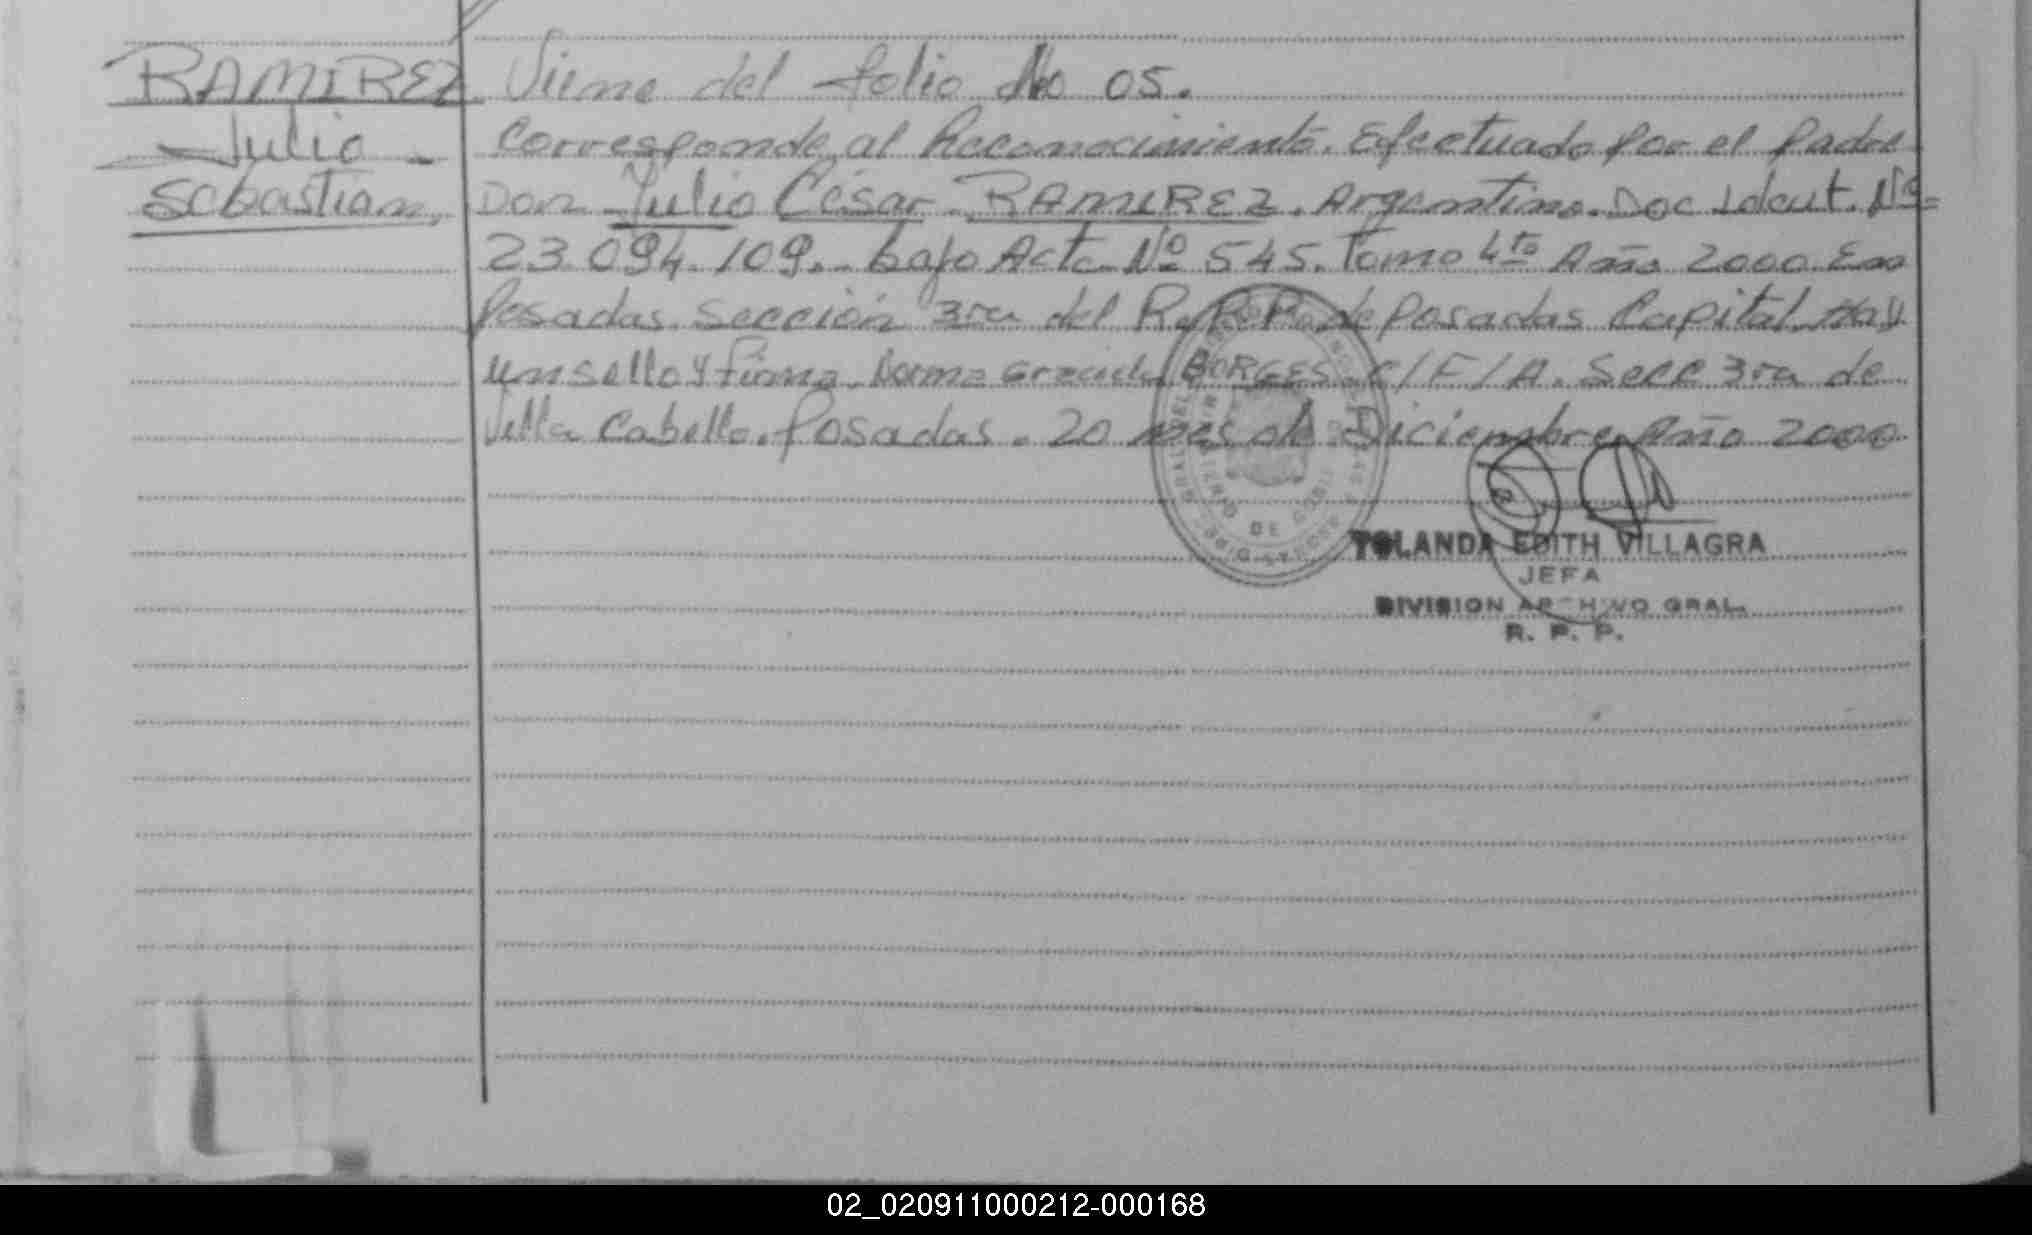 RAMIREZ
Julio
Sebastian,
Viene del folio No 05.
Corresponde al Reconocimiento. Efectuado por el Padre
Don Julio César RAMIREZ. Argentino. Doc Ident. Nº
23.094.109. bajo Acta Nº 545. Tomo 4to Año 2000 En
Posadas Sección 3ra del R.P.P. de Posadas Capital. Hay
un sello y firma. Norma Graciela BORGES. c/F/A. Secc 3ra de
Villa Cabello. Posadas. 20 mes de Diciembre Año 2000
YOLANDA EDITH VILLAGRA
JEFA
DIVISION ARCHIVO GRAL.
R. P. P.
02_020911000212-000168